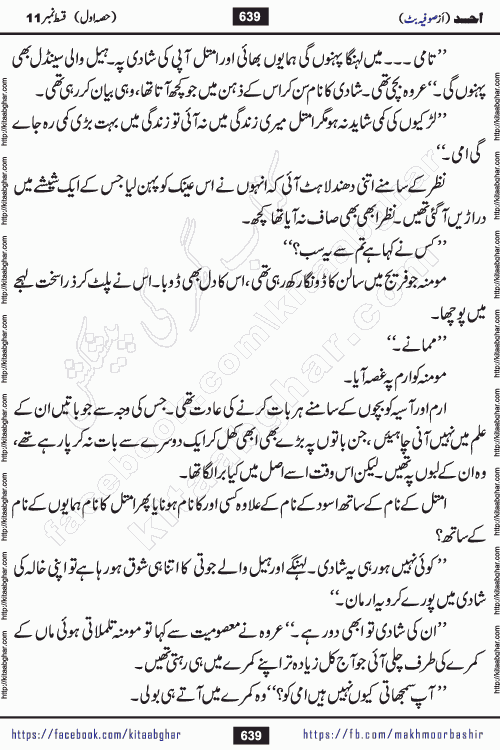 احمد (از صوفیہ بٹ)
639
(حصہ اول) قسط نمبر 11
’’تامی۔۔۔میں لہنگا پہنوں گی ہمایوں بھائی اور امتل آپی کی شادی پہ۔ ہیل والی سینڈل بھی
پہنوں گی۔‘‘ عروہ بچی تھی۔ شادی کا نام سن کر اس کے ذہن میں جو کچھ آتا تھا، وہی بیان کر رہی تھی۔
’’لڑکیوں کی کمی شاید نہ ہو مگر امتل میری زندگی میں نہ آئی تو زندگی میں بہت بڑی کمی رہ جائے
گی امی۔‘‘
نظر کے سامنے اتنی دھندلاہٹ آئی کہ انہوں نے اس عینک کو پہن لیا جس کے ایک شیشے میں
دراڑیں آگئی تھیں۔ نظر ابھی بھی صاف نہ آیا تھا کچھ۔
’’کس نے کہا ہے تم سے یہ سب؟‘‘
مومنہ جو فریج میں سالن کا ڈونگا رکھ رہی تھی، اس کا دل بھی ڈوبا۔ اس نے پلٹ کر ذرا سخت لہجے
میں پوچھا۔
’’ممانے۔‘‘
مومنہ کو ارم پہ غصہ آیا۔
ارم اور آسیہ کو بچوں کے سامنے ہر بات کرنے کی عادت تھی۔ جس کی وجہ سے جو باتیں ان کے
علم میں نہیں آنی چاہیئں، جن باتوں پہ بڑے بھی ابھی کھل کر ایک دوسرے سے بات نہ کر پا رہے تھے،
وہ ان کے لبوں پہ تھیں۔ لیکن اس وقت اسے اصل میں کیا برا لگا تھا۔
امتل کے نام کے ساتھ اسود کے نام کے علاوہ کسی اور کا نام ہونا یا پھر امتل کا نام ہمایوں کے نام
کے ساتھ؟
’’کوئی نہیں ہو رہی یہ شادی۔ لہنگے اور ہیل والے جوتی کا اتنا ہی شوق ہو رہا ہے تو اپنی خالہ کی
شادی میں پورے کرو یہ ارمان۔‘‘
’’ان کی شادی تو ابھی دور ہے۔‘‘ عروہ نے معصومیت سے کہا تو مومنہ تلملاتی ہوئی ماں کے
کمرے کی طرف چلی آئی جو آج کل زیادہ تر اپنے کمرے میں ہی رہتی تھیں۔
’’آپ سمجھاتی کیوں نہیں ہیں امی کو؟‘‘ وہ کمرے میں آتے ہی بولی۔
https://facebook.com/kitaabghar
639
https://fb.com/makhmoorbashir
http://kitaabghar.com
facebook.com/kitaabghar
kitaabghar.com
کتاب گھر کی پیشکش